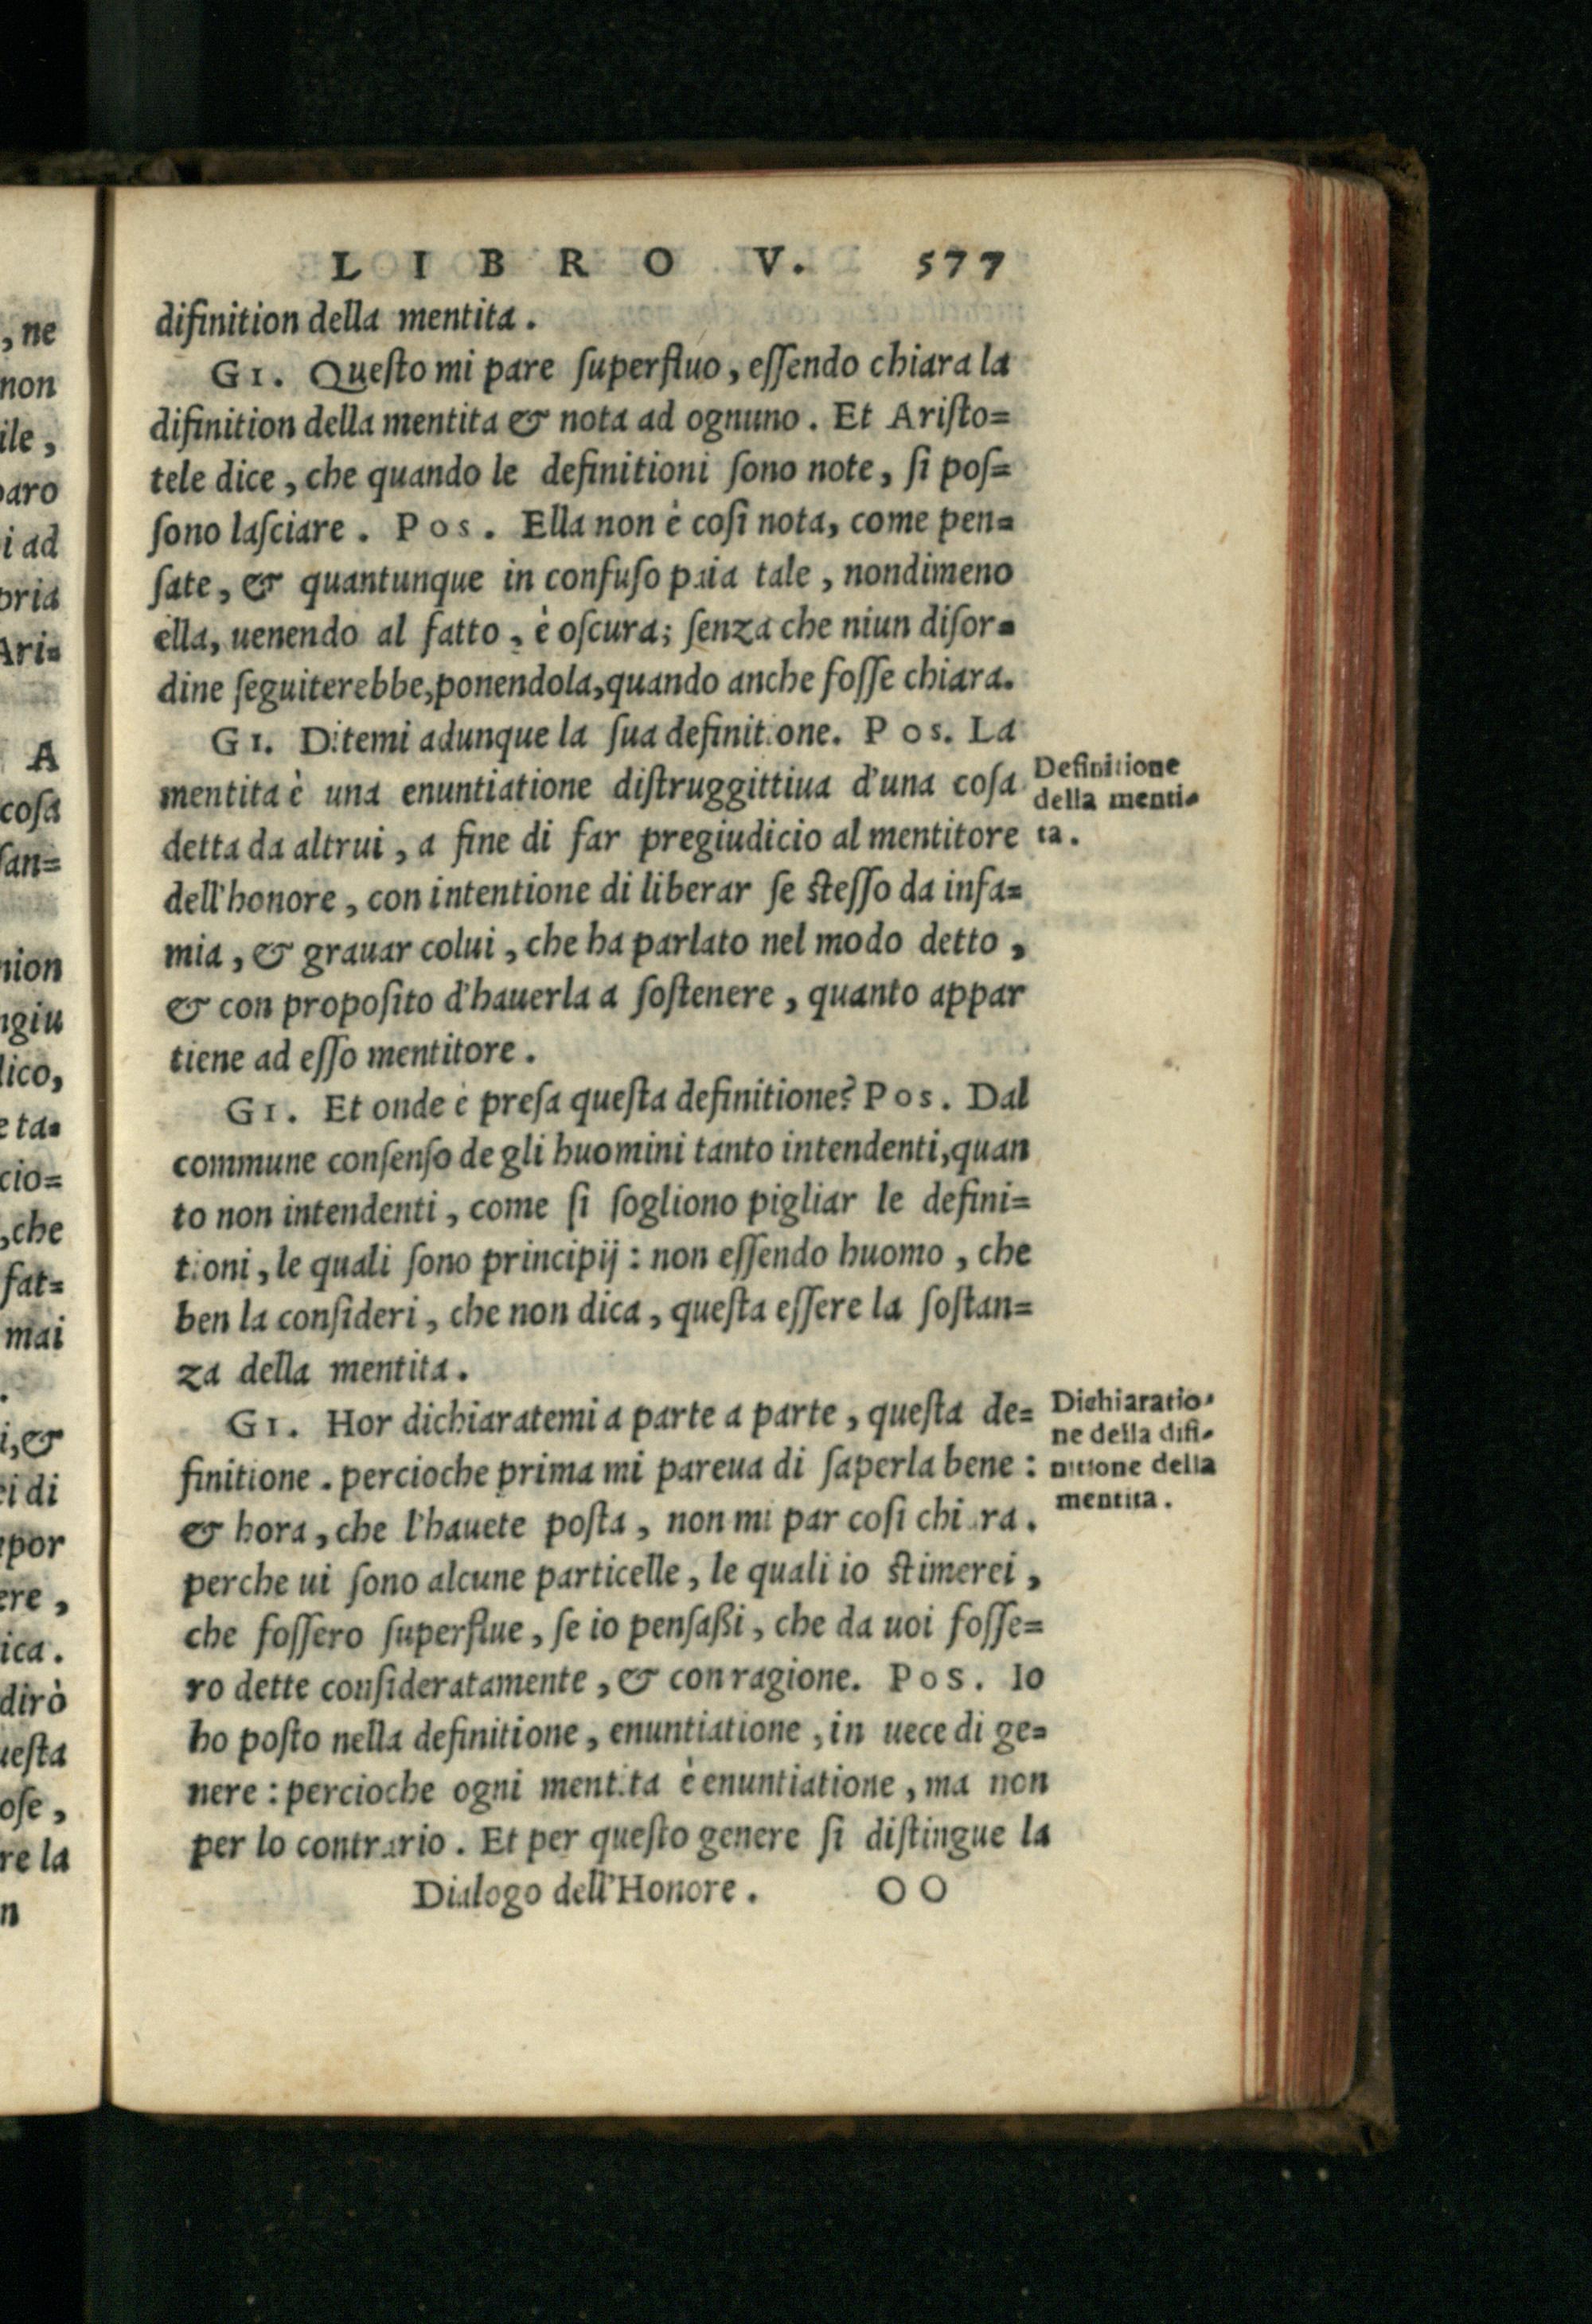 LIBRO V. 577
difinition della mentita.
GI. Queſto mi pare ſuperfluo, eſſendo chiara la
difinition della mentita & nota ad ognuno. Et Ariſto=
tele dice, che quando le definitioni ſono note, ſi poſ=
ſono laſciare. Pos. Ella non è coſi nota, come pen=
ſate, & quantunque in confuſo paia tale, nondimeno
ella, uenendo al fatto, è oſcura; ſenza che niun diſor=
dine ſeguiterebbe, ponendola, quando anche foſſe chiara.
GI. Ditemi adunque la ſua definitione. Pos. La
mentita è una enuntiatione diſtruggittiua d'una coſa
detta da altrui, a fine di far pregiudicio al mentitore
dell'honore, con intentione di liberar ſe ſteſſo da infa=
mia, & grauar colui, che ha parlato nel modo detto,
& con propoſito d'hauerla a ſoſtenere, quanto appar
tiene ad eſſo mentitore.
Definitione
della menti=
ta.
GI. Et onde è preſa queſta definitione? Pos. Dal
commune conſenſo de gli huomini tanto intendenti, quan
to non intendenti, come ſi ſogliono pigliar le defini=
tioni, le quali ſono principij: non eſſendo huomo, che
ben la conſideri, che non dica, queſta eſſere la ſoſtan=
za della mentita.
GI. Hor dichiaratemi a parte a parte, queſta de=
finitione. percioche prima mi pareua di ſaperla bene:
& hora, che l'hauete poſta, non mi par coſi chiara.
perche ui ſono alcune particelle, le quali io ſtimerei,
che foſſero ſuperflue, ſe io penſaßi, che da uoi foſſe=
ro dette conſideratamente, & con ragione. Pos. Io
ho poſto nella definitione, enuntiatione, in uece di ge=
nere: percioche ogni mentita è enuntiatione, ma non
per lo contrario. Et per queſto genere ſi diſtingue la
Dichiaratio=
ne della difi=
nitione della
mentita.
Dialogo dell'Honore. OO